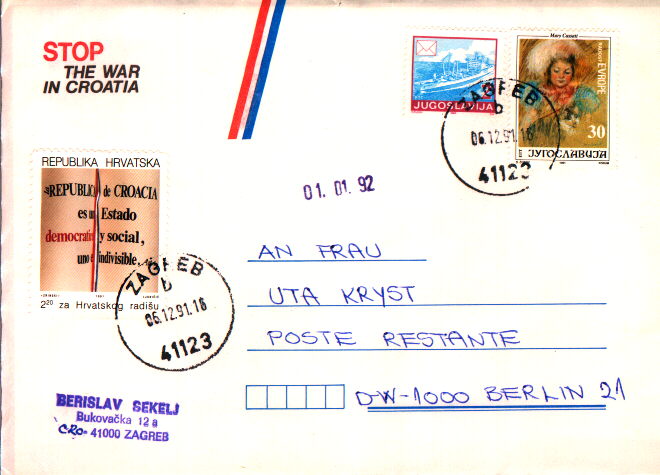 STOP
THE WAR
IN CROATIA
JUGOSLAVIJA
Mary Cassatt
RADOST EVROPE
30
ЈУГОСЛАВИЈА
ZAGREB
b
06.12.91.18
41123
REPUBLIKA HRVATSKA
REPUBLICA de CROACIA
es un Estado
democratic y social,
uno e indivisible,
2.20 za Hrvatskog radišu
ZAGREB
b
06.12.91.18
41123
01. 01. 92
AN FRAU
UTA KRYST
POSTE RESTANTE
D-W-1000 BERLIN 21
BERISLAV SEKELJ
Bukovačka 12 a
CRO- 41000 ZAGREB